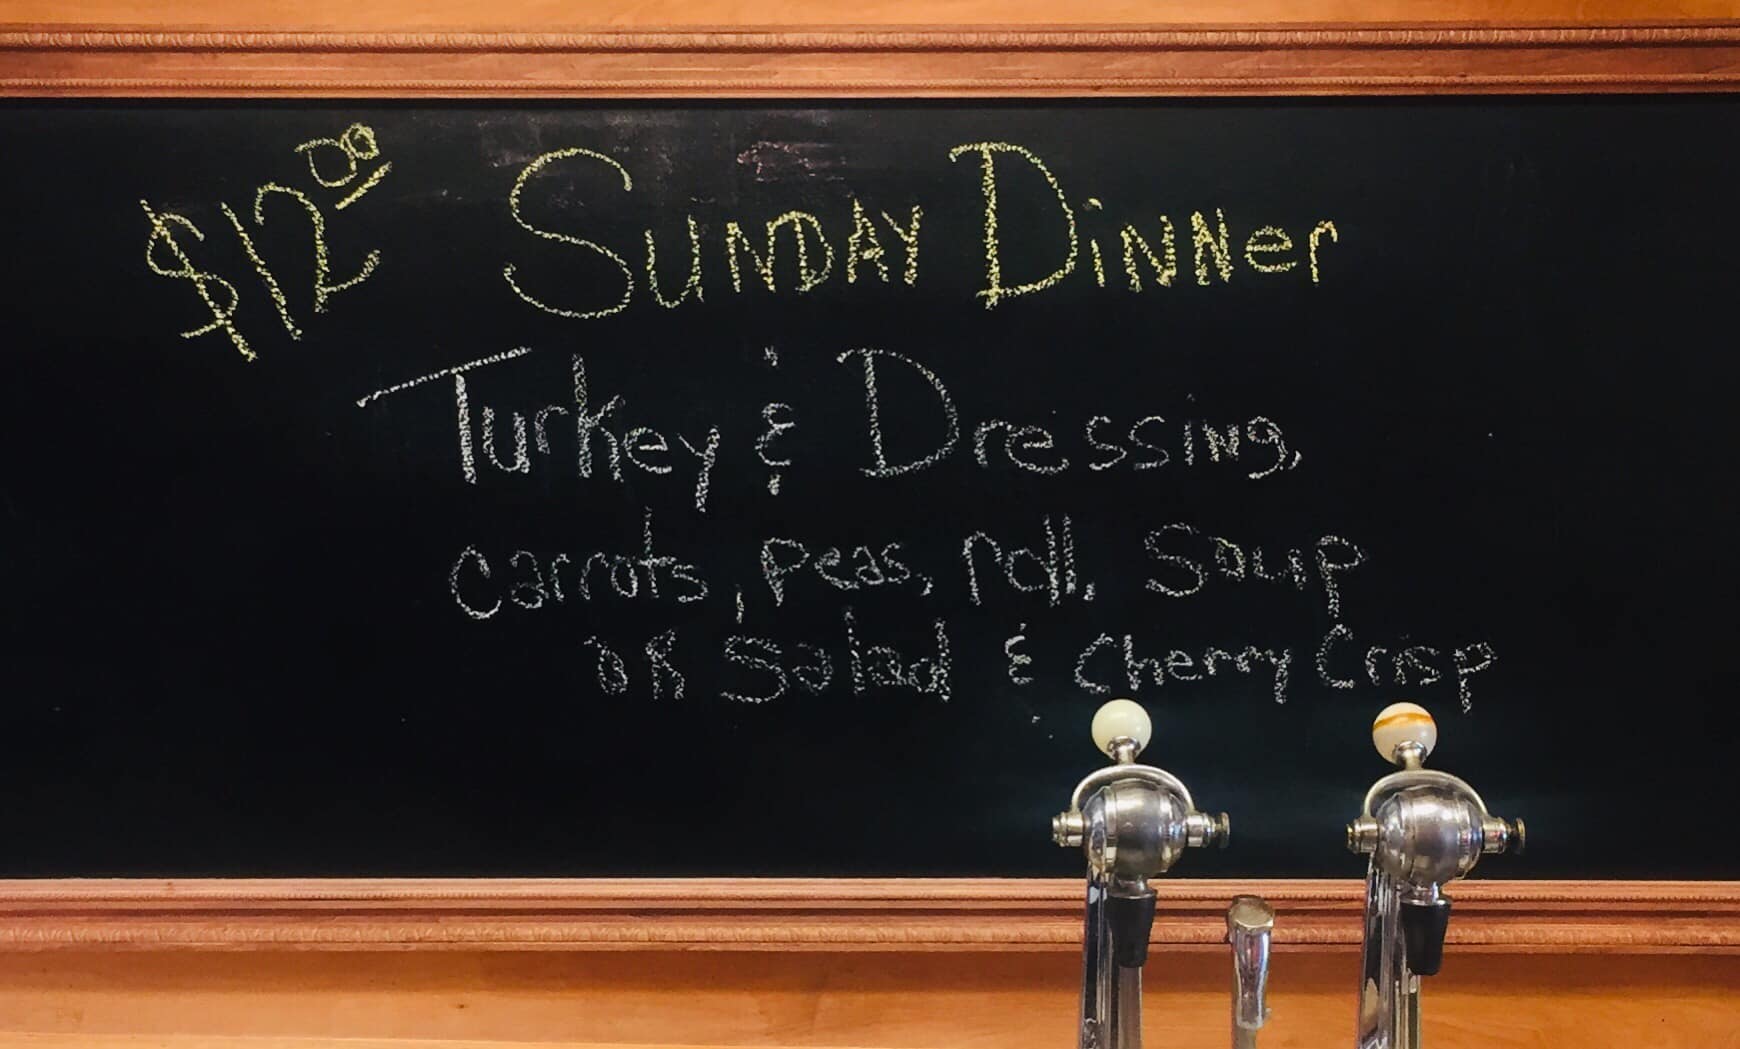 $12.00 SUNDAY DiNNer
Turkey & Dressing,
carrots, peas, roll, Soup
OR Salad & Cherry Crisp